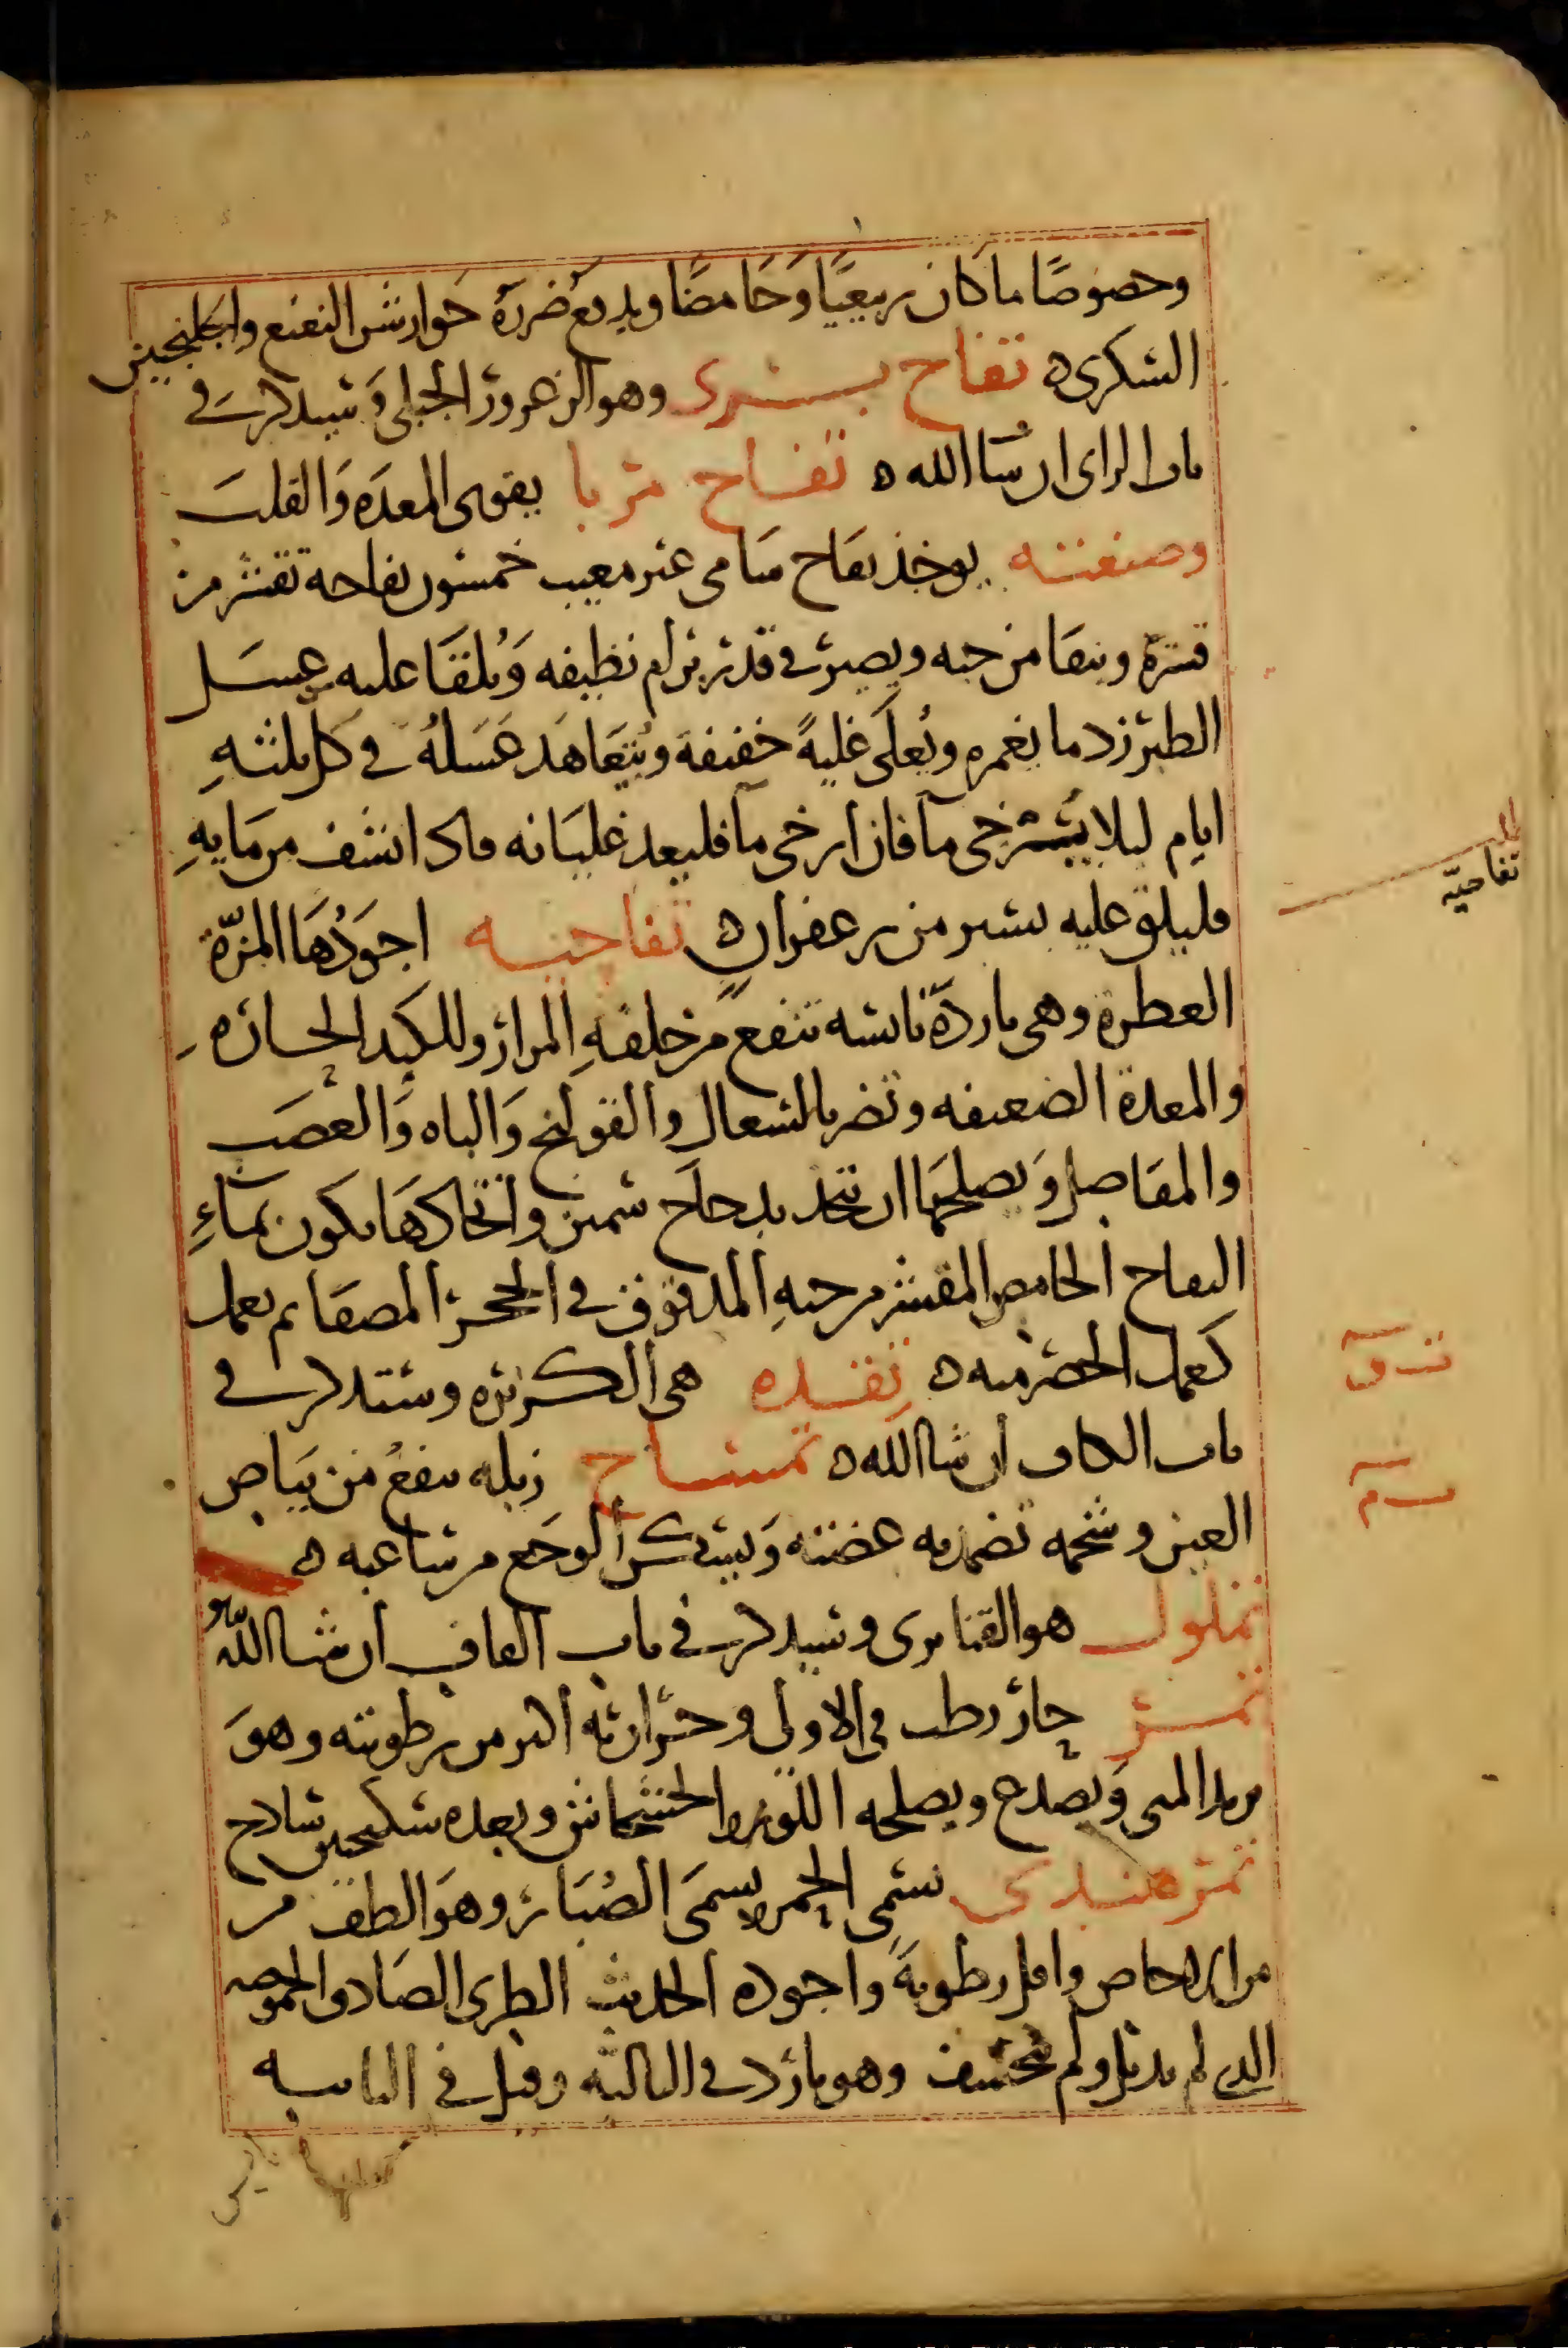 وخصوصًا ما كان ربيعيًا وحامضًا ويدفع ضرره جوارش النعنع والجلنجبين
السكرى ه تفاح برى وهو الزعرور الجبلى وسيذكر فى
باب الزاى ان شا الله ه تفاح مربا يقوى المعده والقلب
وصنعته يوخذ تفاح شامى غير معيب خمسون تفاحه تقشر من
قشره وينقا من حبه ويصير فى قدر برام نظيفه ويلقا عليه عسل
الطبرزد ما يغمره ويغلى غليةً خفيفة ويتعاهد عسله فى كل ثلثه
ايام ليلا يسترخى مآ فان ارخى مآ فليعد غليانه فاذا نشف من مايه
فليلق عليه يسير من زعفران ه تفاحيه اجودها المزّة
العطرة وهى باردة يابسه تنفع من خلفه المرار وللكبد الحاره
والمعدة الضعيفه وتضر بالسعال والقولنج والباه والعصب
والمفاصل ويصلحها ان تتخذ بدجاج سمين واتخاذها يكون بمآءِ
التفاح الحامض المقشر من حبه المدقوق فى الحجر المصفا ثم يعمل
كعمل الحصرميه ه تقده هى الكزبره وستذكر فى
باب الكاف ان شا الله ه تمساح زبله ينفع من بياض
العين وشحمه تضمد به عضته ويسكن الوجع من ساعته ه
تملول هو القنابرى وسيذكر فى باب القاف ان شا الله
تمر حار رطب فى الاولى وحرارته اكثر من رطوبته وهو
يزيد المنى ويصدع ويصلحه اللوز والخشخاش وبعده سكنجبين ساذج
تمر هندى يسمى الحمر ويسمى الصبار وهو الطف من
من الاجاص واقل رطوبة واجوده الحديث الطرى الصادق الحموضه
الذى لم يذبل ولم يتحشف وهو بارد فى الثالثه وقيل فى الثانيه
تفاحيّه